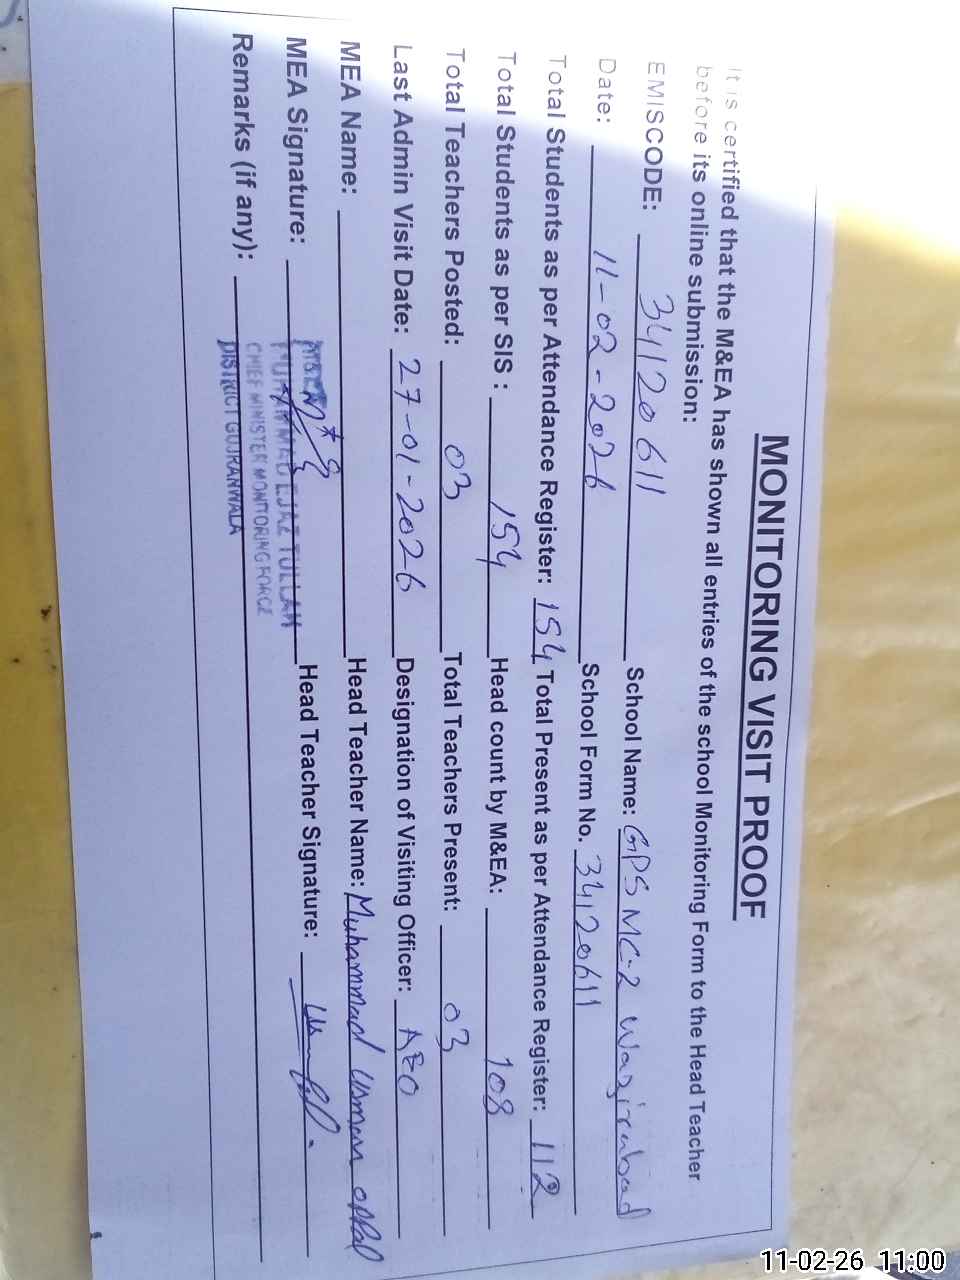 MONITORING VISIT PROOF
It is certified that the M&EA has shown all entries of the school Monitoring Form to the Head Teacher
before its online submission:
EMISCODE: 34120611 School Name: GPS MC-2 Wazirabad
Date: 11-02-2026 School Form No. 34120611
Total Students as per Attendance Register: 154 Total Present as per Attendance Register: 112
Total Students as per SIS : 154 Head count by M&EA: 108
Total Teachers Posted: 03 Total Teachers Present: 03
Last Admin Visit Date: 27-01-2026 Designation of Visiting Officer: AEO
MEA Name: Head Teacher Name: Muhammad Usman
MEA Signature: MUHAMMAD EJAZ TULLAH Head Teacher Signature:
CHIEF MINISTER MONITORING FORCE
Remarks (if any): DISTRICT GUJRANWALA
11-02-26 11:00